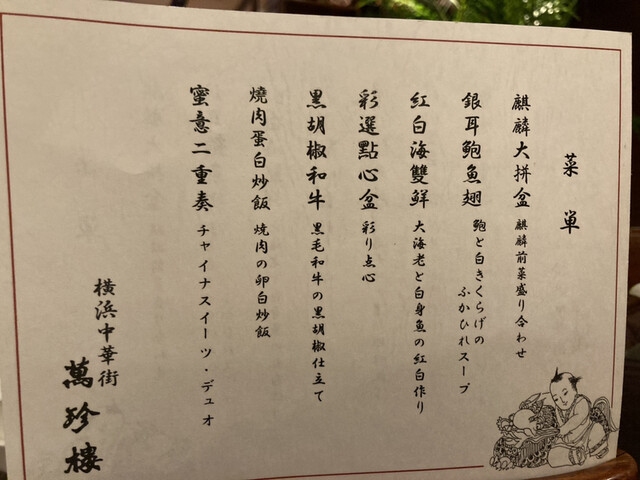 菜単
麒麟大拼盆 麒麟前菜盛り合わせ
銀耳鮑魚翅 鮑と白きくらげの
ふかひれスープ
紅白海雙鮮 大海老と白身魚の紅白作り
彩選點心盆 彩り点心
黒胡椒和牛 黒毛和牛の黒胡椒仕立て
燒肉蛋白炒飯 焼肉の卵白炒飯
蜜意二重奏 チャイナスイーツ・デュオ
横浜中華街
萬珍樓